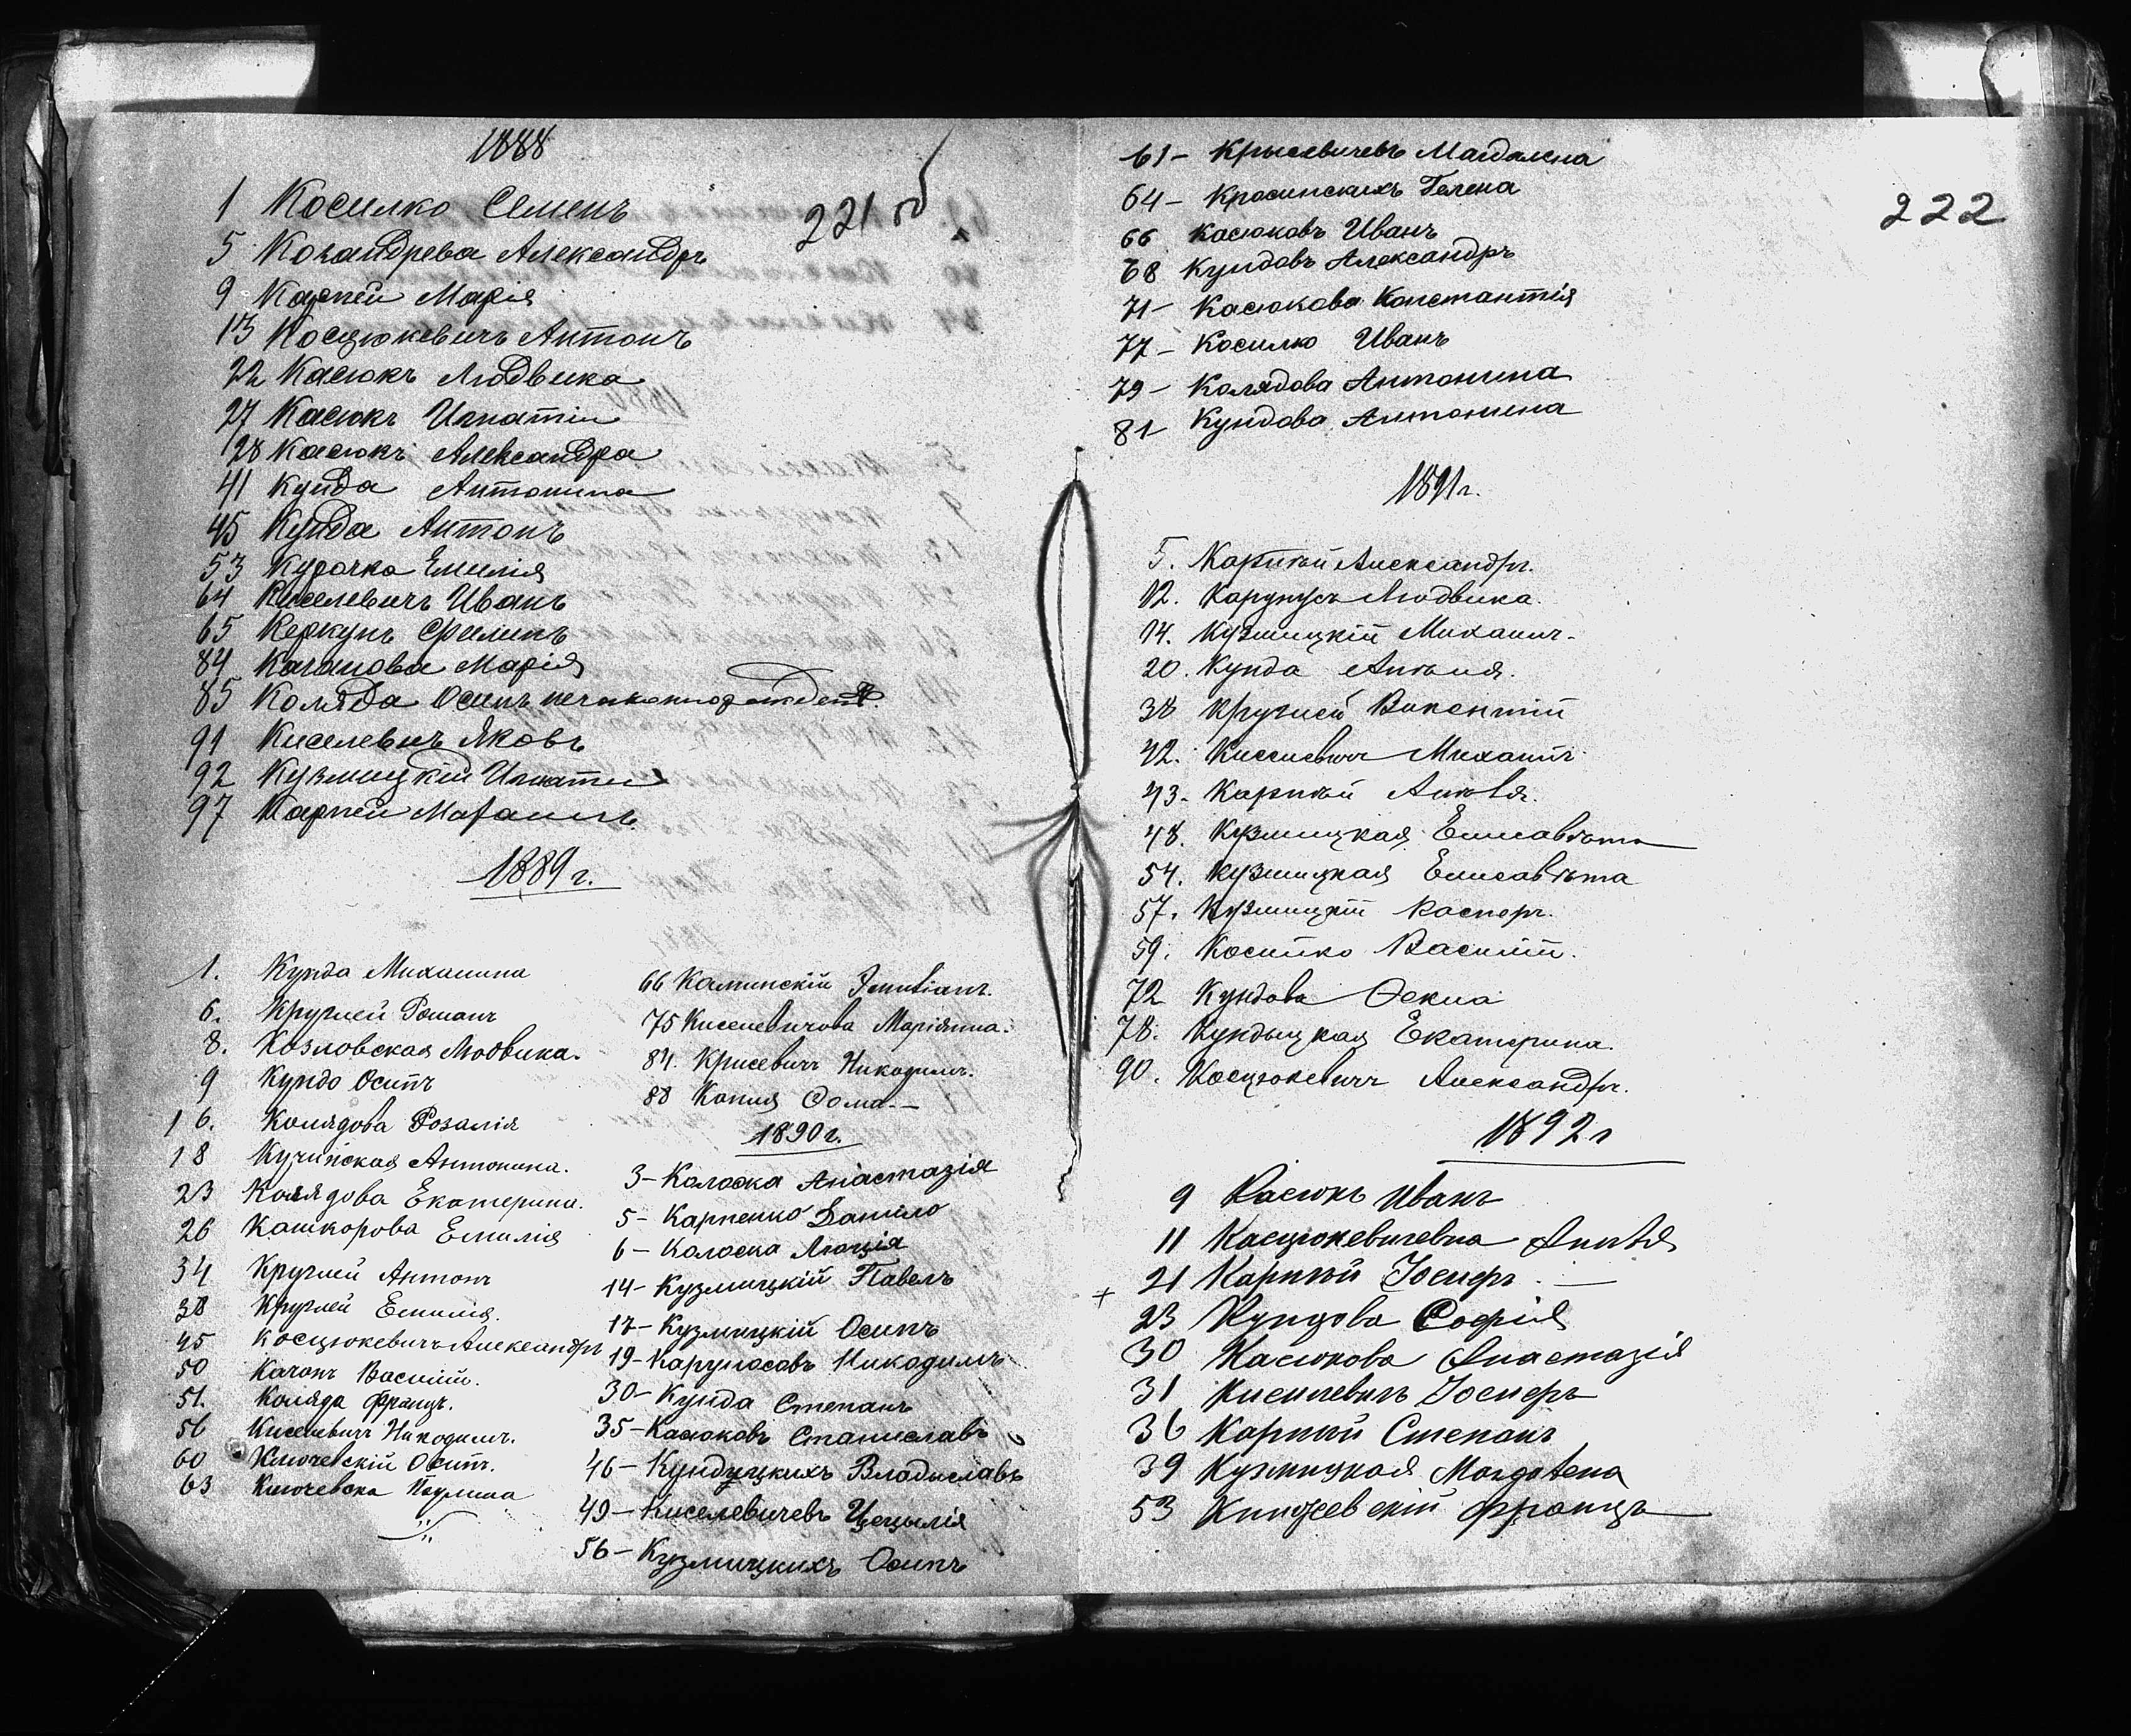 1888
221 об
1 Косилко Семенъ
5 Качандрева Александръ
9 Карпей Марія
13 Косцюкевичъ Антонъ
22 Касюкъ Людвика
27 Касюкъ Игнатій
28 Касюкъ Александра
41 Кунда Антонина
45 Кунда Антонъ
53 Курочка Емилія
64 Киселевичъ Иванъ
65 Керкунъ Филипъ
84 Качанова Марія
85 Коляда Осипъ
91 Киселевичъ Яковъ
92 Кузмицкій Игнатій
97 Карпей
1889 г.
1. Кунда Михалина
6. Круглей Романъ
8. Козловская Людвика.
9 Кундо Осипъ
16. Колядова Розалія
18 Кучинская Антонина.
23 Колядова Екатерина.
26 Кашкорова Емилія
34 Круглей Антонъ
38 Круглей Емилія.
45 Косцюкевичъ Александръ
50 Качанъ Василій.
51. Коляда Францъ.
56 Киселевичъ Никодимъ.
60 Ключевскій Осипъ.
63 Ключевска Паулина
66 Калинскій
75 Киселевичова Маріянна.
84. Крисевичъ Никодимъ.
88 Копия Фома. —
1890 г.
3 — Колоска Анастазія
5 — Карпенко Данило
6 — Колоска Люція
14 — Кузмицкій Павелъ
17 — Кузмицкій Осипъ
19 — Карупосовъ Никодимъ
30 — Кунда Степанъ
35 — Касюковъ Станиславъ
46 — Кундуцкихъ Владыславъ
49 — Киселевичевъ Цецылія
56 — Кузмицкихъ Осипъ
222
61 — Крысевичевъ Магдалена
64 — Красинскихъ Гелена
66 Касюковъ Иванъ
68 Кундовъ Александръ
71 — Касюкова Константія
77 — Косилко Иванъ
79 — Колядова Антонина
81 — Кундова Антонина
1891 г.
5. Карпей Александръ.
12. Карупусъ Людвика.
14. Кузмицкій Михаилъ.
20. Кунда Анеля.
38 Круглей Викентій
42. Киселевичъ Михаилъ
43. Карпей Анеля.
48. Кузмицкая Елисавѣта
54. Кузмицкая Елисавѣта
57. Кузмицкій Касперъ.
59. Косилко Василій.
72 Кундова Фекла
78. Кундыцкая Екатерина.
90. Косцюкевичъ Александръ.
1892 г
9 Касюкъ Иванъ
11 Косцюкевичевна Анеля
+ 21 Карпей Іосифъ. —
23 Кундова Софія
30 Касюкова Анастазія
31 Киселевичъ Іосифъ
36 Карпей Степанъ
39 Кузмицкая Магдалена
53 Францъ